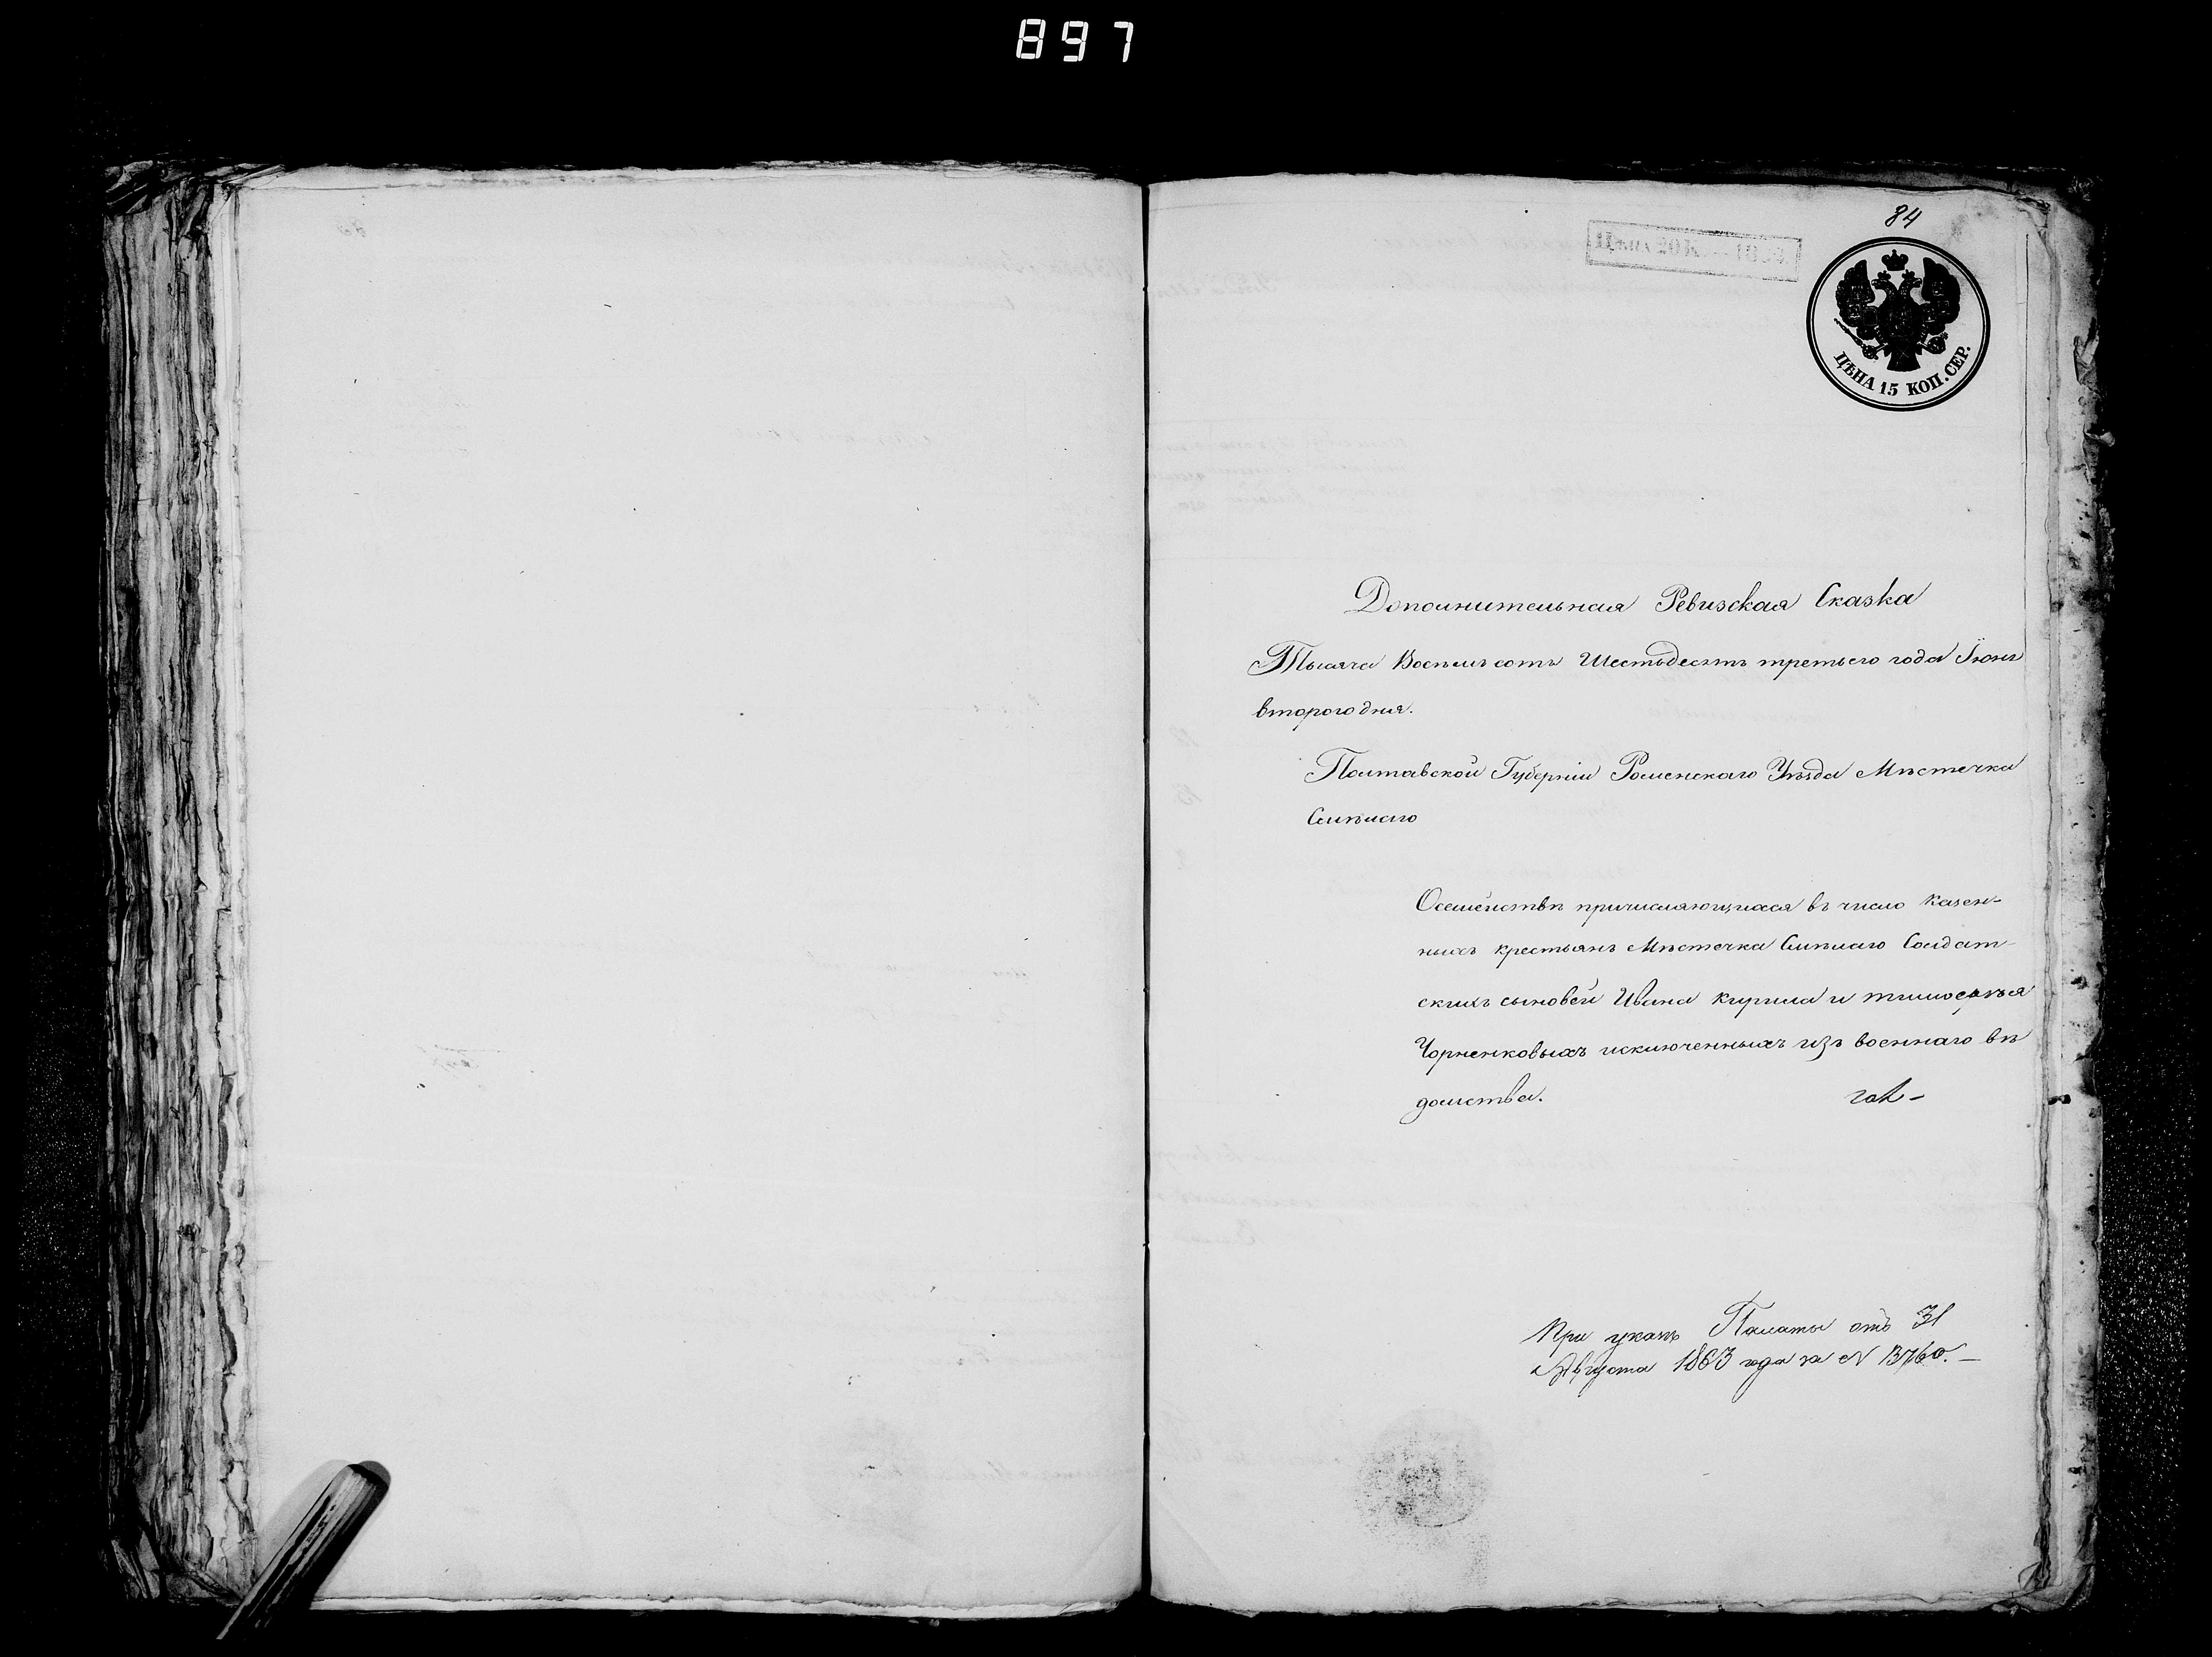 897
84
Цѣна 20 К.
ЦѢНА 15 КОП. СЕР.
Дополнительная Ревизская Сказка
Тысяча Восемьсотъ Шестьдесятъ третьего года Іюня
второго дня.
Полтавской Губерніи Роменскаго Уѣзда Мѣстечка
Смѣлаго
О семействѣ причисляющихся въ число казен-
ныхъ крестьянъ Мѣстечка Смѣлаго Солдат-
скихъ сыновей Ивана Кирила и тимофѣя
Чорненковыхъ исключенныхъ изъ военнаго вѣ
домства.
При указѣ Палаты отъ 31
Августа 1863 года за N 13760. —